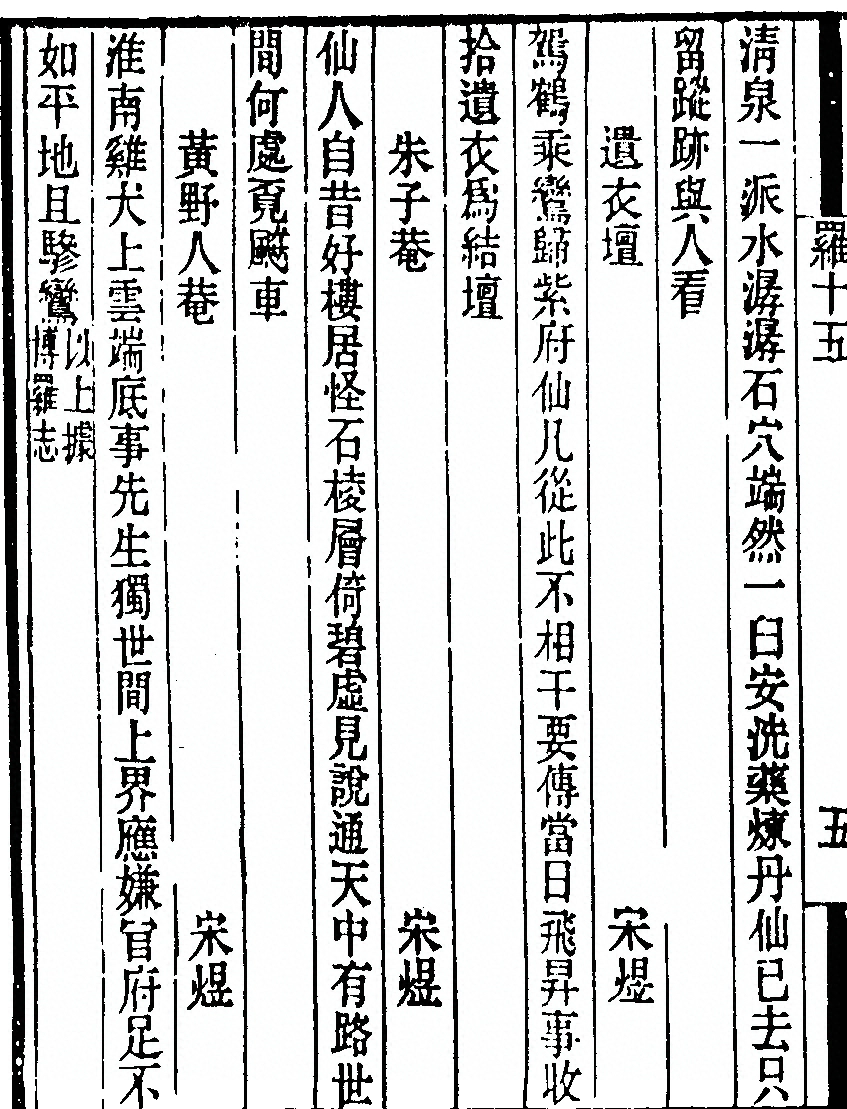 羅十五
五
清泉一派水潺潺石穴端然一臼安洗藥煉丹仙已去只
留蹤跡與人看
遺衣壇 宋煜
駕鶴乘鸞歸紫府仙凡從此不相干要傳當日飛昇事收
拾遺衣爲結壇
朱子菴 宋煜
仙人自昔好樓居怪石棱層倚碧虛見說通天中有路世
間何處覓飇車
黃野人菴 宋煜
淮南雞犬上雲端底事先生獨世間上界應嫌官府足不
如平地且驂鸞以上據
博羅志